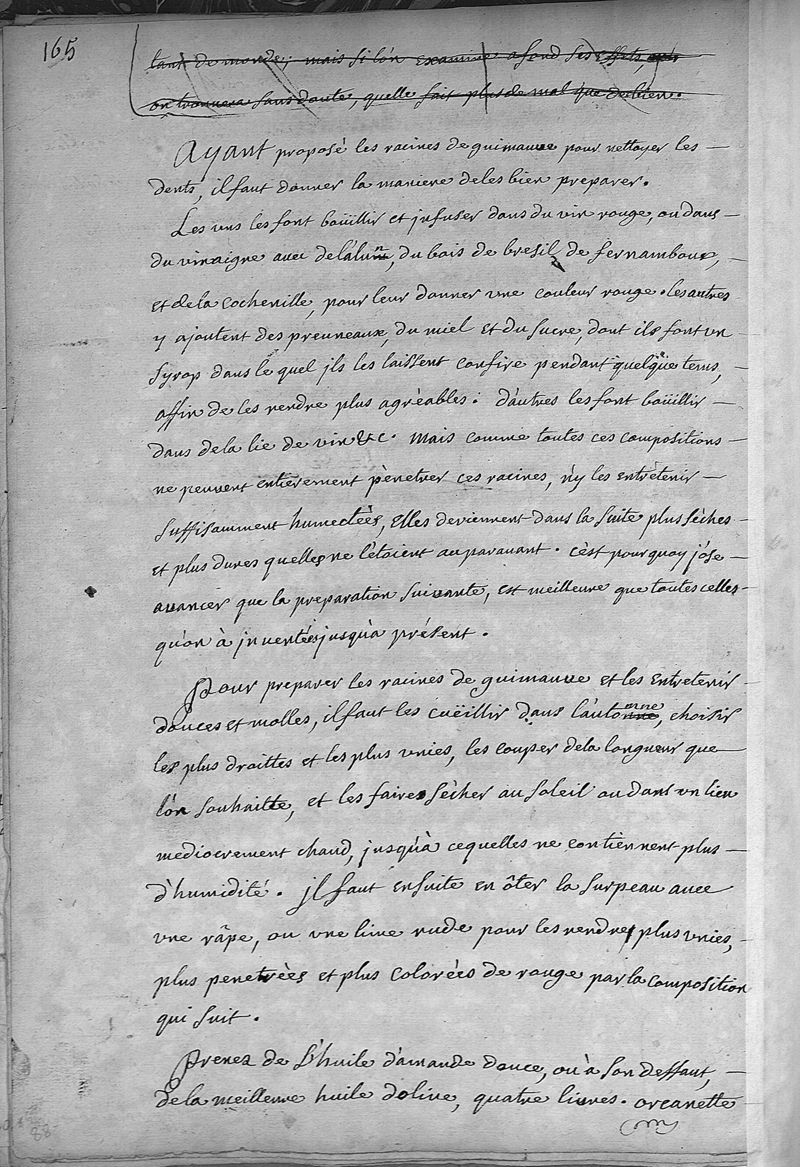 165
tant de monde; mais si l'on examine a fond ses effets,
on trouvera sans doute, quelle fait plus de mal que de bien.
Ayant proposé les racines de guimauve pour nettoyer les
dents, il faut donner la maniere de les bien preparer.
Les uns les font boüillir et jnfuser dans du vin rouge, ou dans
du vinaigre avec de l'álun, du bois de bresil de fernambouc,
et de la cochenille, pour leur donner une couleur rouge. les autres
y ajoutent des preuneaux, du miel et du sucre, dont ils font un
syrop dans le quel jls les laissent confire pendant quelque tems,
affin de les rendre plus agréables: d'autres les font boüillir
dans de la lie de vin &c. mais comme toutes ces compositions
ne peuvent entierement pènetrer ces racines, n'y les entrétenir
suffisamment humectées, Elles deviennent dans la suite plus sèches
et plus dures quelles ne l'étoient auparavant. c'est pourquoy j'óse
avancer que la preparation suivante, est meilleure que toutes celles
qu'on à jnventées jusqu'a présent.
Pour preparer les racines de guimauve et les entretenir
douces et molles, il faut les cuëillir dans l'automne, choisir
les plus droittes et les plus unies, les couper de la longueur que
l'on souhaitte, et les faire sécher au soleil ou dans un lieu
mediocrement chaud, jusqu'à cequelles ne contiennent plus
d'humidité. jl faut ensuite en ôter la surpeau avec
une râpe, ou une lime rude pour les rendre plus unies,
plus penetrées et plus colorées de rouge par la composition
qui suit.
Prenez de L'huile d'amande douce, ou à son deffaut,
de la meilleure huile d'olive, quatre livres. orcanette
88